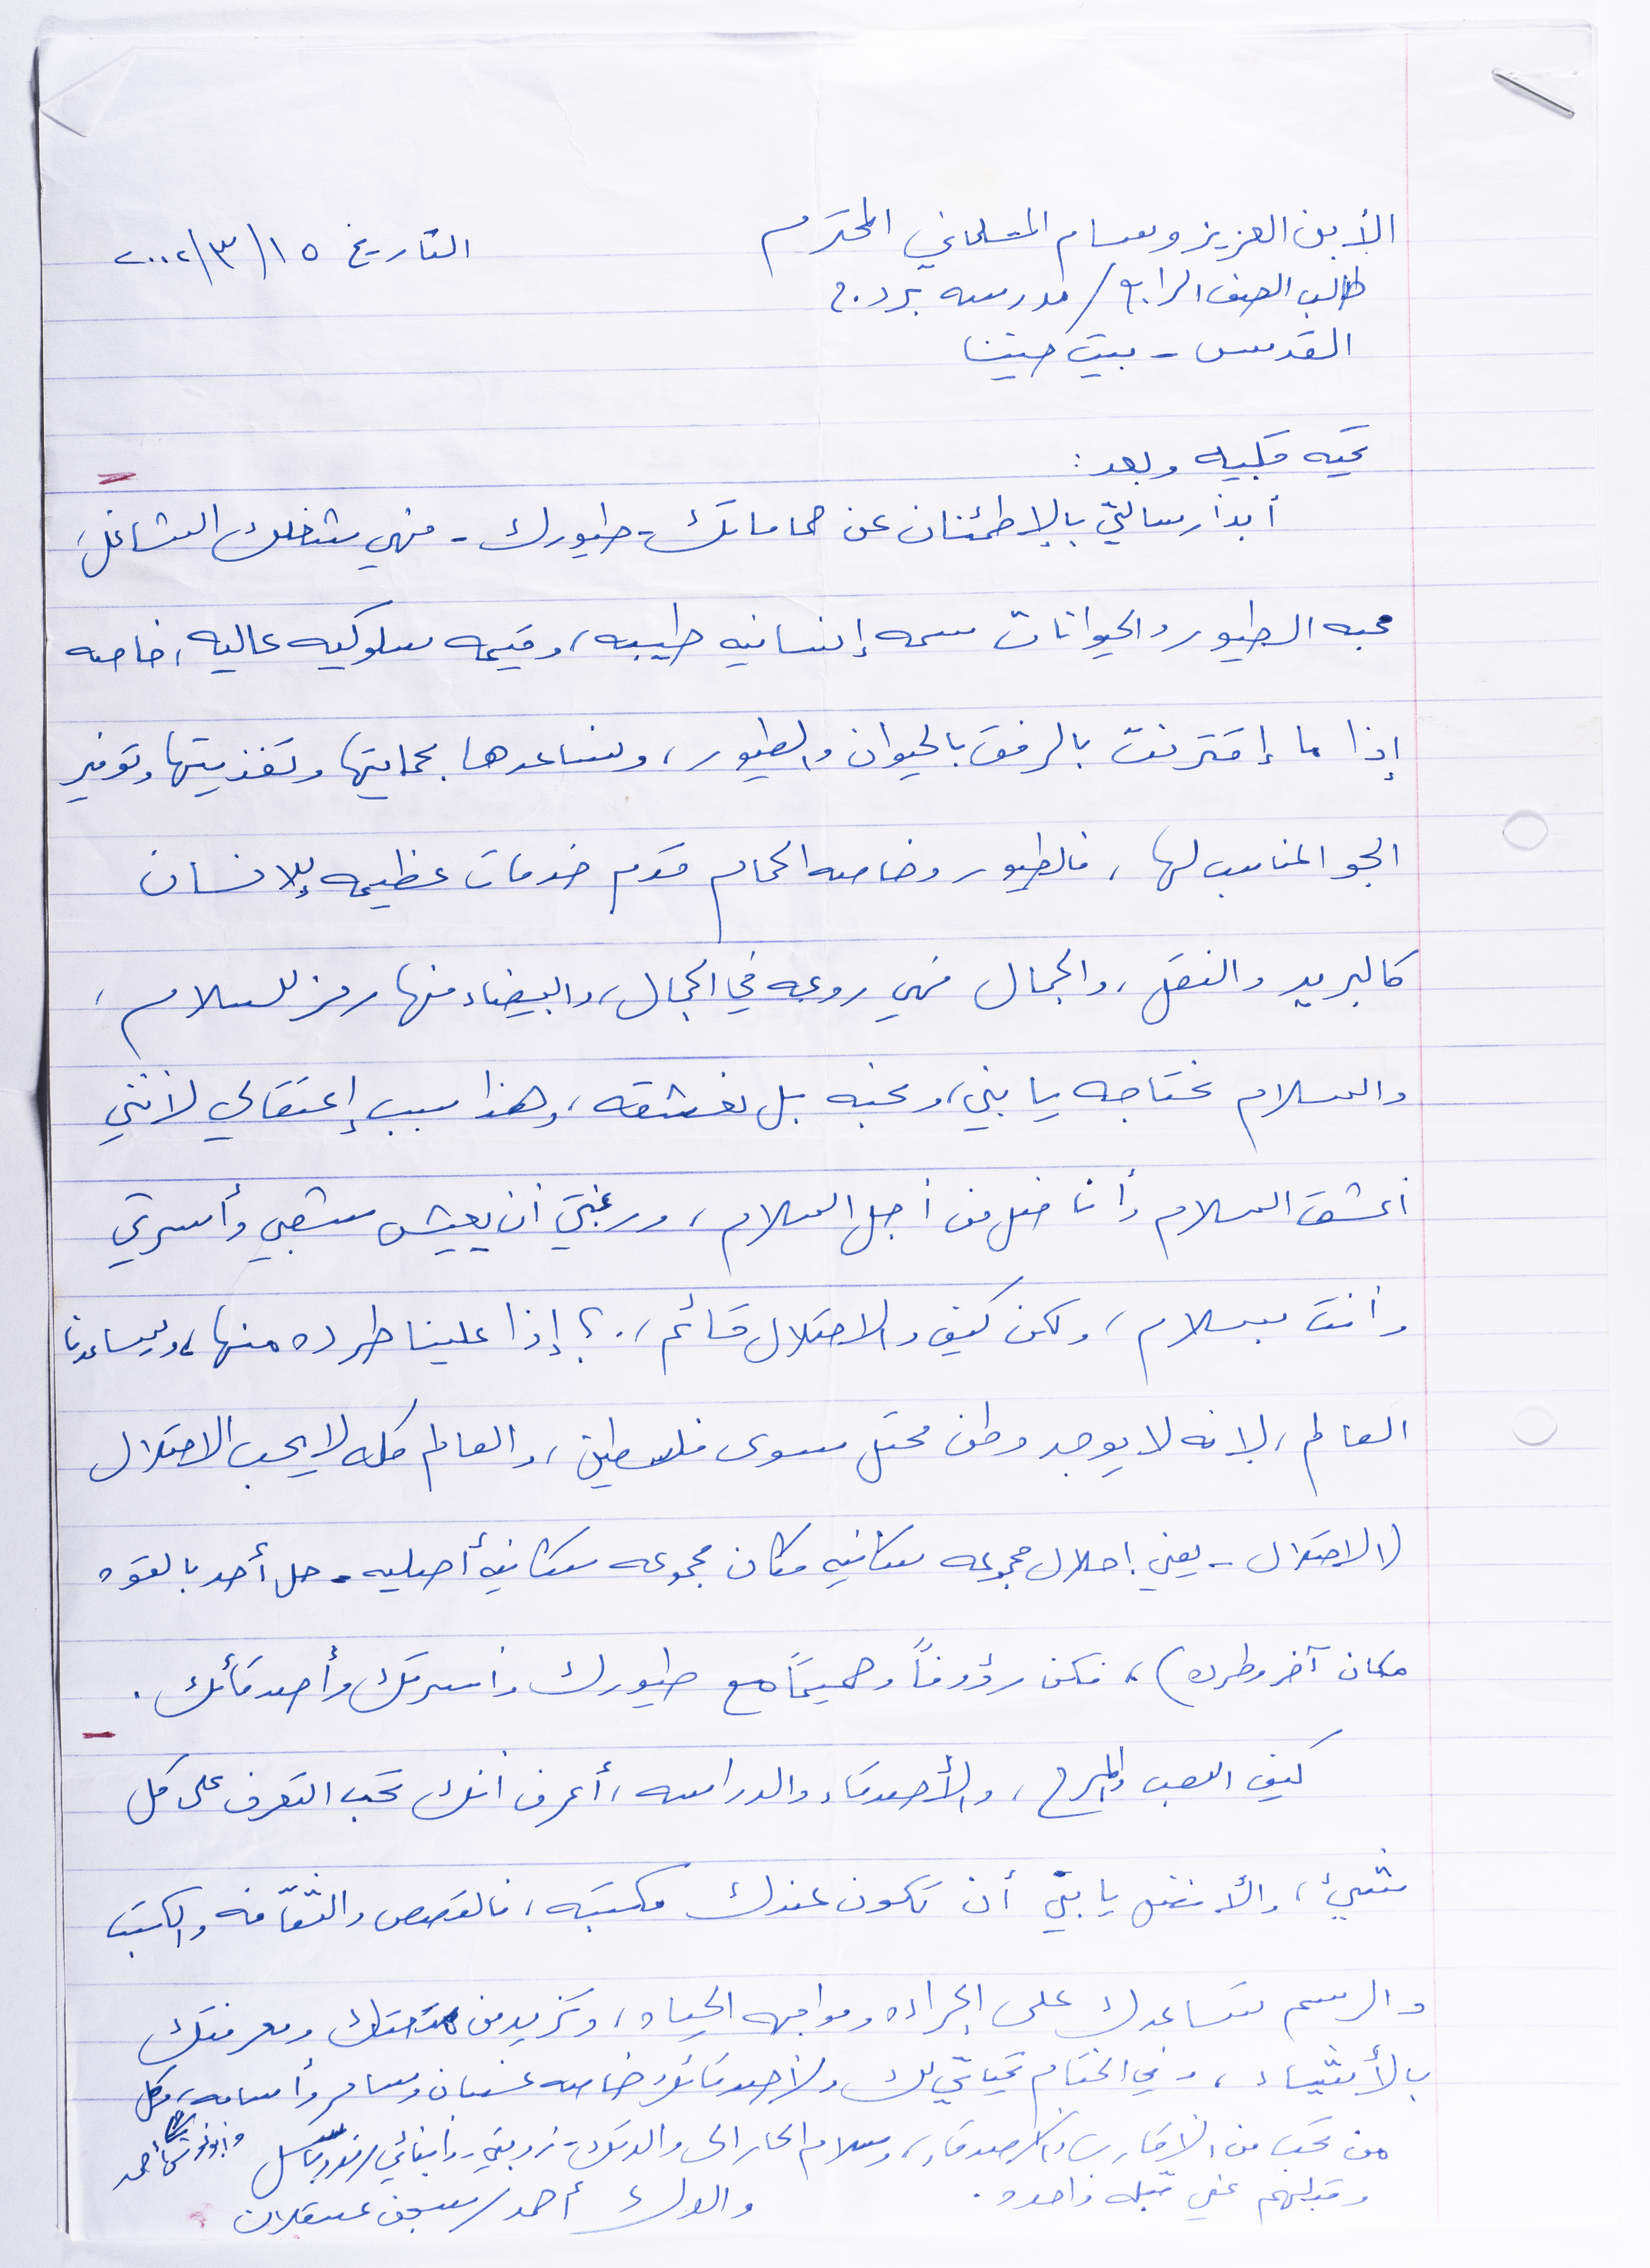 الأبن العزيز وسام المسلماني المحترم
التاريخ ١٥/٣/٢٠٠٢
طالب الصف الرابع / مدرسه
القدس - بيت حنينا
تحيه قلبيه وبعد :
أبدأ رسالتي بالإطمئنان عن حماماتك - طيورك - فهي شغلك الشاغل،
محبه الطيور والحيوانات سمه إنسانيه طيبه، وقيمه سلوكيه عاليه، خاصه
إذا ما إقترنت بالرفق بالحيوان والطيور، ونساعدها بحمايتها وتغذيتها وتوفير
الجو المناسب لها، فالطيور وخاصه الحمام قدم خدمات عظيمه للإنسان
كالبريد والنقل، والجمال فهي روعه في الجمال، والبيضاء منها رمز للسلام،
والسلام نحتاجه يا بني، ونحبه بل نعشقه، وهذا سبب إعتقالي لأنني
أعشق السلام وأناضل من أجل السلام، ورغبتي أن يعيش شعبي وأسرتي
وأنت بسلام، ولكن كيف والاحتلال قائم،.؟ إذا علينا طرده منها، وليساعدنا
العالم، لانه لا يوجد وطن محتل سوى فلسطين، والعالم كله لا يحب الاحتلال
(الاحتلال - يعني احلال مجموعه سكانيه مكان مجموعه سكانيه أصليه - حل أحد بالقوه
مكان آخر وطرده)، فكن رؤوفاً وحميماً مع طيورك وأسرتك وأصدقائك .
كيف اللعب والمرح، والأصدقاء والدراسه، أعرف أنك تحب التعرف على كل
شيئ، والأفضل يا بنيّ أن تكون عندك مكتبه، فالقصص والثقافه والكتب
والرسم تساعدك على الجراءه ومواجهه الحياه، وتزيد من ومعرفتك
بالأشياء، وفي الختام تحياتي لك ولأصدقائك وخاصه غسان وسامر وأسامه، وكل
من تحب من الاقارب والاصدقاء، وسلام الحار الى والديك - زوجتي وأبنائي
وقبلهم عني قبله واحده .
والدك أحمد / سجن عسقلان